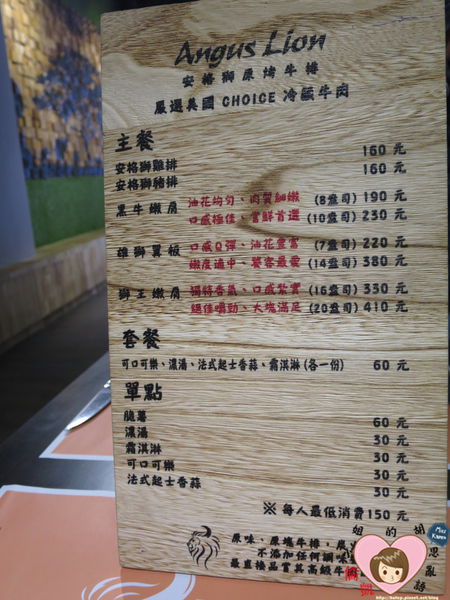 Angus Lion
安格獅原烤牛排
嚴選美國 CHOICE 冷藏牛肉
主餐
安格獅雞排 160 元
安格獅豬排 160 元
黑牛嫩肩 油花均勻、肉質細嫩 (8盎司) 190 元
口感極佳、嘗鮮首選 (10盎司) 230 元
雄獅翼板 口感Q彈、油花豐富 (7盎司) 220 元
嫩度適中、饕客最愛 (14盎司) 380 元
獅王嫩肩 獨特香氣、口感紮實 (16盎司) 330 元
絕佳嚼勁、大塊滿足 (20盎司) 410 元
套餐
可口可樂、濃湯、法式起士香蒜、霜淇淋 (各一份) 60 元
單點
脆薯 60 元
濃湯 30 元
霜淇淋 30 元
可口可樂 30 元
法式起士香蒜 30 元
※ 每人最低消費150 元
原味、原塊牛排,
不添加任何調味
最直接品嘗其高級牛
Miss Karen